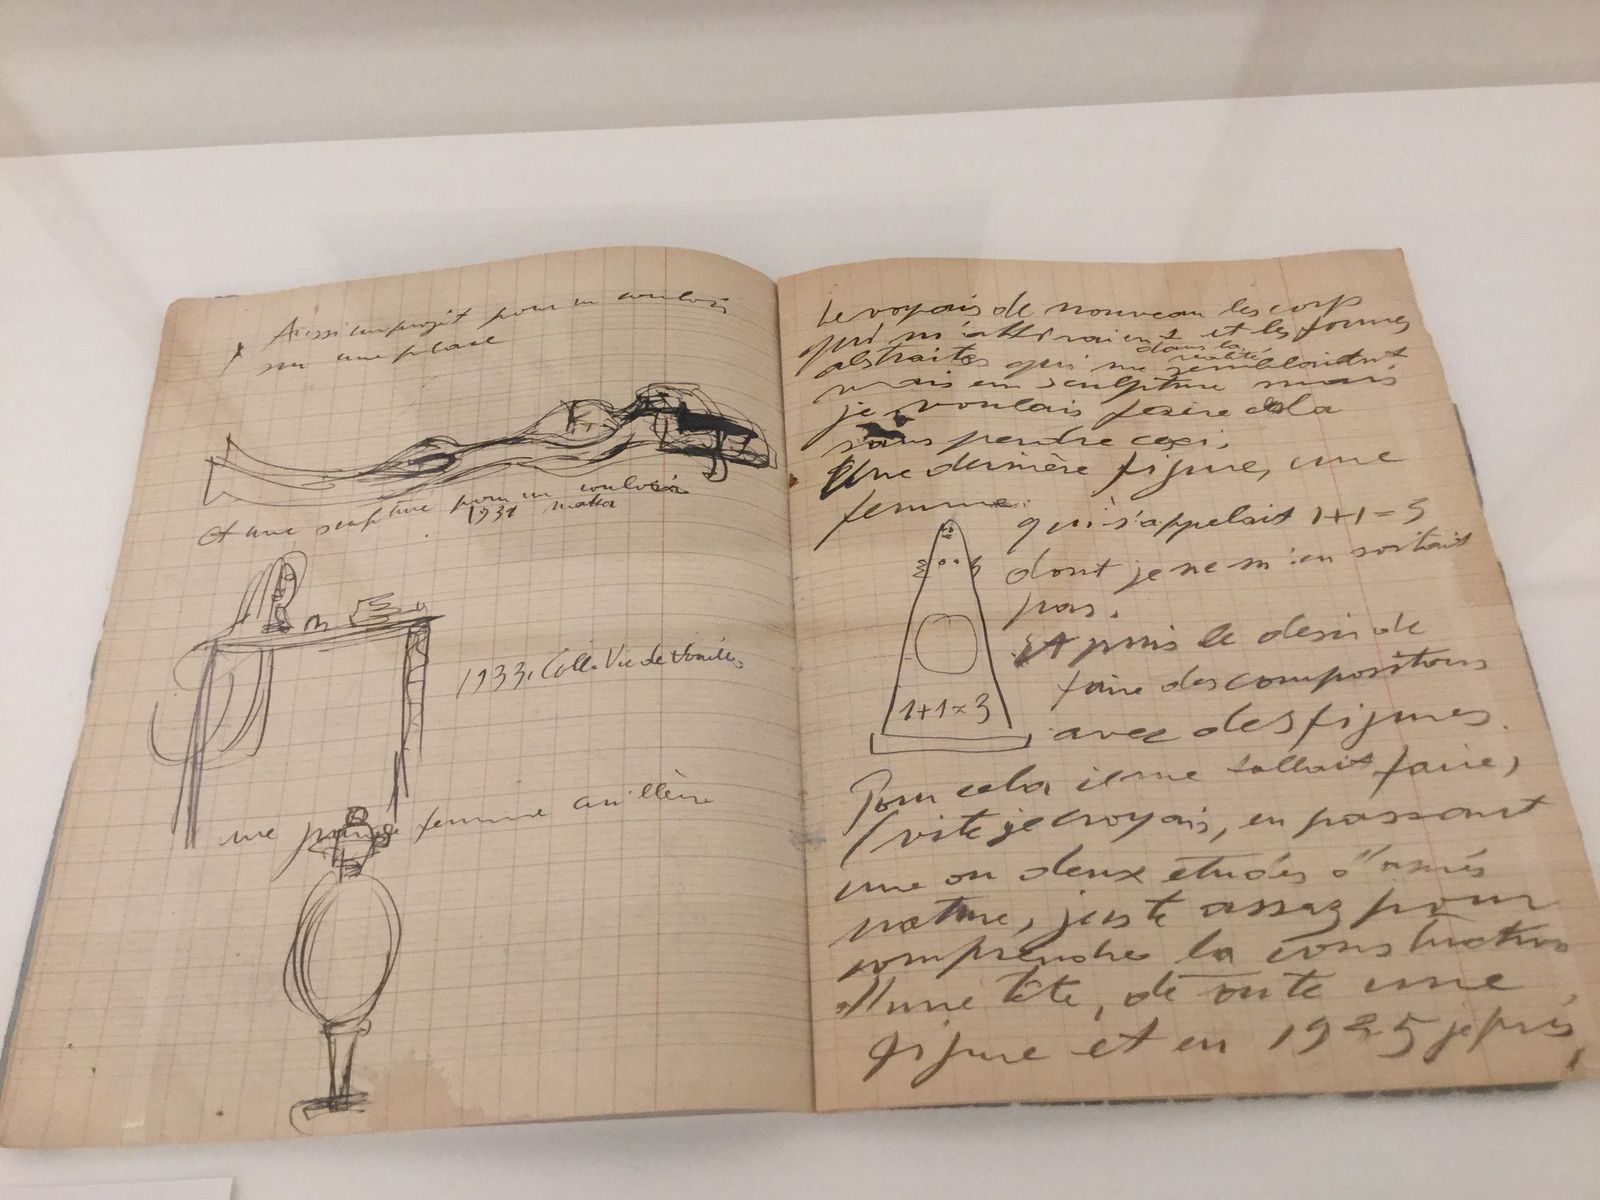 Aussi un projet pour un couloir
sur une place
et une sculpture pour un couloir
1931
1933. Colle. Vie de Noailles
une femme cuillère
Je voyais de nouveau les corps
qui m'attiraient et les formes
dans la réalité
abstraites qui me semblaient
vrais en sculpture mais
je voulais faire cela
sans perdre ceci,
Une dernière figure, une
femme
qui s'appelait 1+1=3
dont je ne m'en sortait
pas.
Et puis le desir de
faire des compositions
avec des figures.
1+1=3
Pour cela il me fallait faire,
(vite je croyais, en passant
une ou deux etudes d'après
nature, juste assez pour
comprendre la construction
d'une tête, de toute une
figure et en 1925 je pris,